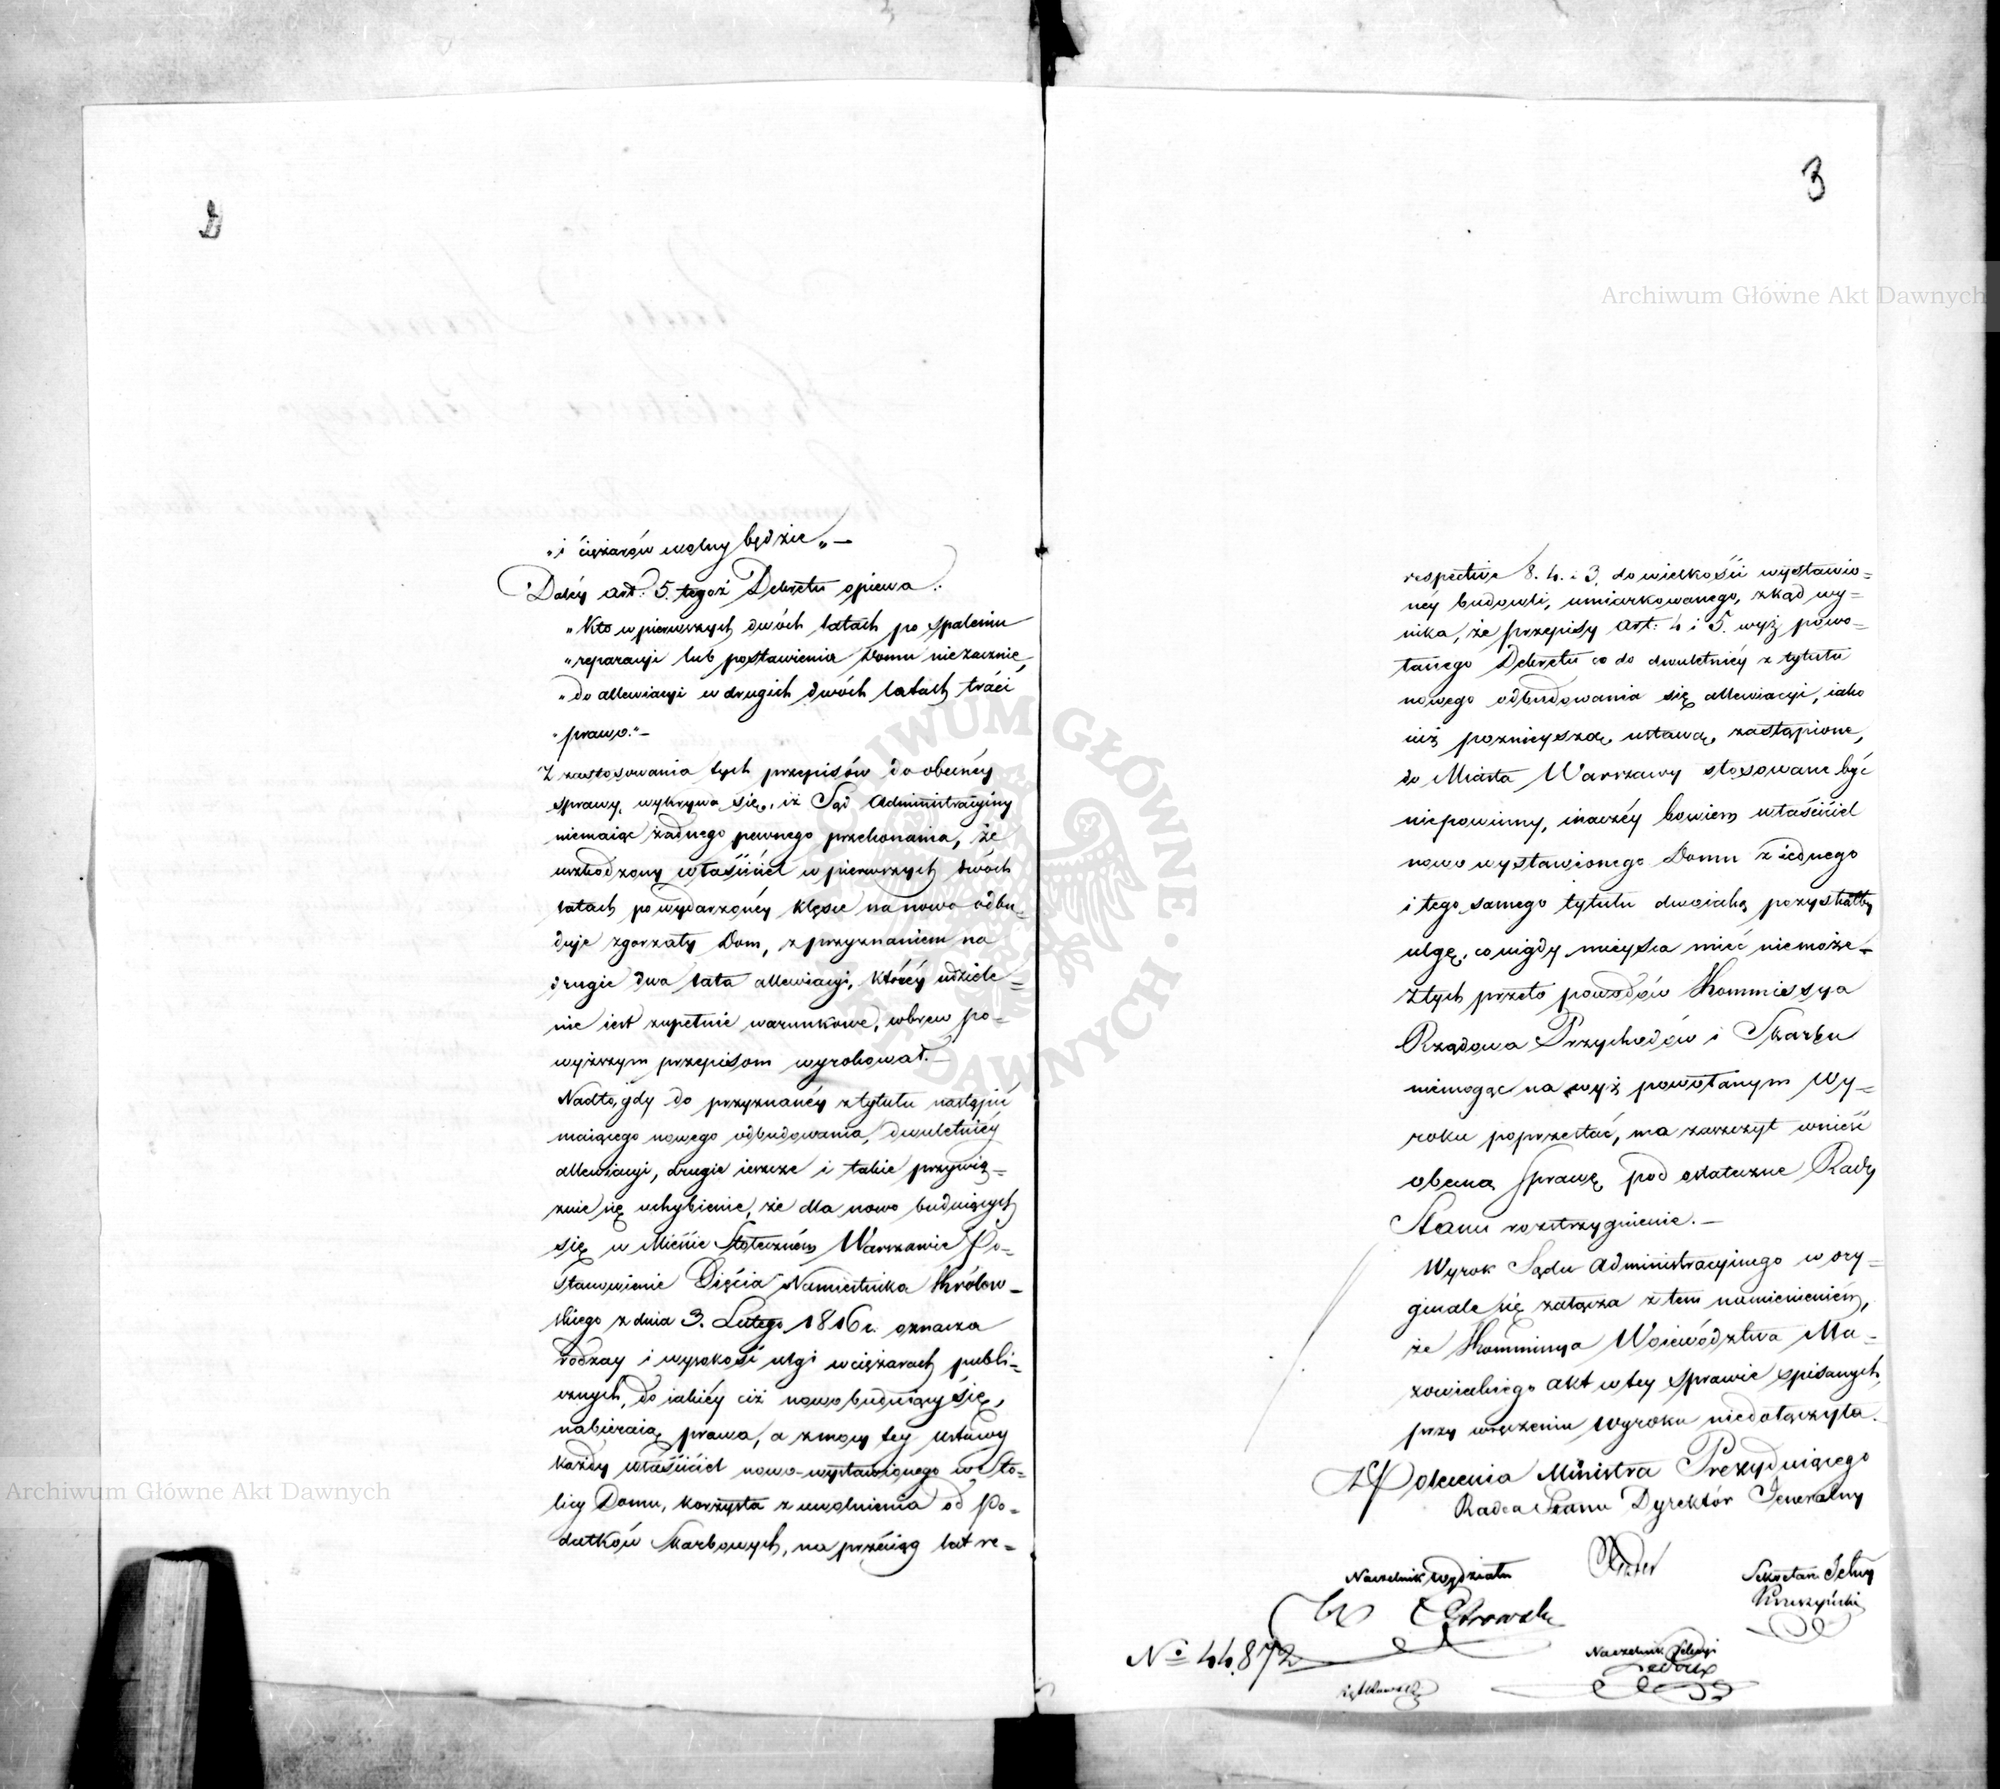 2
„i ciężarów wolny będzie„ —
Daléy art: 5. tegoż Dekretu opiewa:
„Kto w pierwszych dwóch latach po spaleniu
„reparacyi lub postawienia Domu niezacznie,
„do allewiacyi w drugich dwóch latach traci
„prawo." —
Z zastosowania tych przepisów do obecnéy
sprawy, wykrywa się, iż Sąd Administracyiny
niemaiąc żadnego pewnego przekonania, że
uszkodzony właściciel w pierwszych dwóch
latach po wydarzonéy klęsce na nowo odbu=
duje zgorzały Dom, z przyznaniem na
drugie dwa lata allewiacyi, któréy udziele=
nie iest zupełnie warunkowe, wbrew po=
wyższym przepisom wyrokował. —
Nadto, gdy do przyznanéy z tytułu nastąpić
maiącego nowego odbudowania, dwuletniéy
allewiacyi, drugie ieszcze i takie przywią=
zuie się uchybienie, że dla nowo buduiących
się w Mieście Stołeczném Warszawie Po=
stanowienie Xięcia Namiestnika Królew=
skiego z dnia 3. Lutego 1816 r. oznacza
rodzay i wysokość ulgi w ciężarach publi=
cznych, do iakiéy ciż nowo buduiący się,
nabieraią prawa, a z mocy tey Ustawy
każdy właściciel nowo-wystawionego w Sto=
licy Domu, korzysta z uwolnienia od Po=
datków Skarbowych, na przeciąg lat re=
3
respective 8. 4. i 3. do wielkości wystawio=
néy budowli, umiarkowanego, zkąd wy=
nika, że przepisy Art: 4 i 5. wyż powo=
łanego Dekretu co do dwuletniéy z tytułu
nowego odbudowania się allewiacyi, iako
iuż poznieyszą ustawą, zastąpione,
do Miasta Warszawy stosowane być
niepowinny, inaczéy bowiem właściciel
nowo wystawionego Domu z iednego
i tego samego tytułu dwoiaką pozyskałby
ulgę, co nigdy mieysca mieć niemoże. —
Ztych przeto powodów Kommissya
Rządowa Przychodów i Skarbu
niemogąc na wyż powołanym Wy=
roku poprzestać, ma zaszczyt wnieść
obecną Sprawę pod ostateczne Rady
Stanu rozstrzygnienie. —
Wyrok Sądu Administracyinego w ory=
ginale się załącza z tem namienieniém,
że Kommissya Województwa Ma=
zowieckiego akt w tey sprawie spisanych,
przy wręczeniu Wyroku niedołączyła.
z Polecenia Ministra Prezyduiącego
Radca Stanu Dyrektór Jeneralny
Naczelnik Wydziału
Sekretarz Jelny
Kruszyński
Ostrowski
Naczelnik Sekcyi
No 44.872
Archiwum Główne Akt Dawnych
Archiwum Główne Akt Dawnych
ARCHIWUM GŁÓWNE • AKT DAWNYCH •